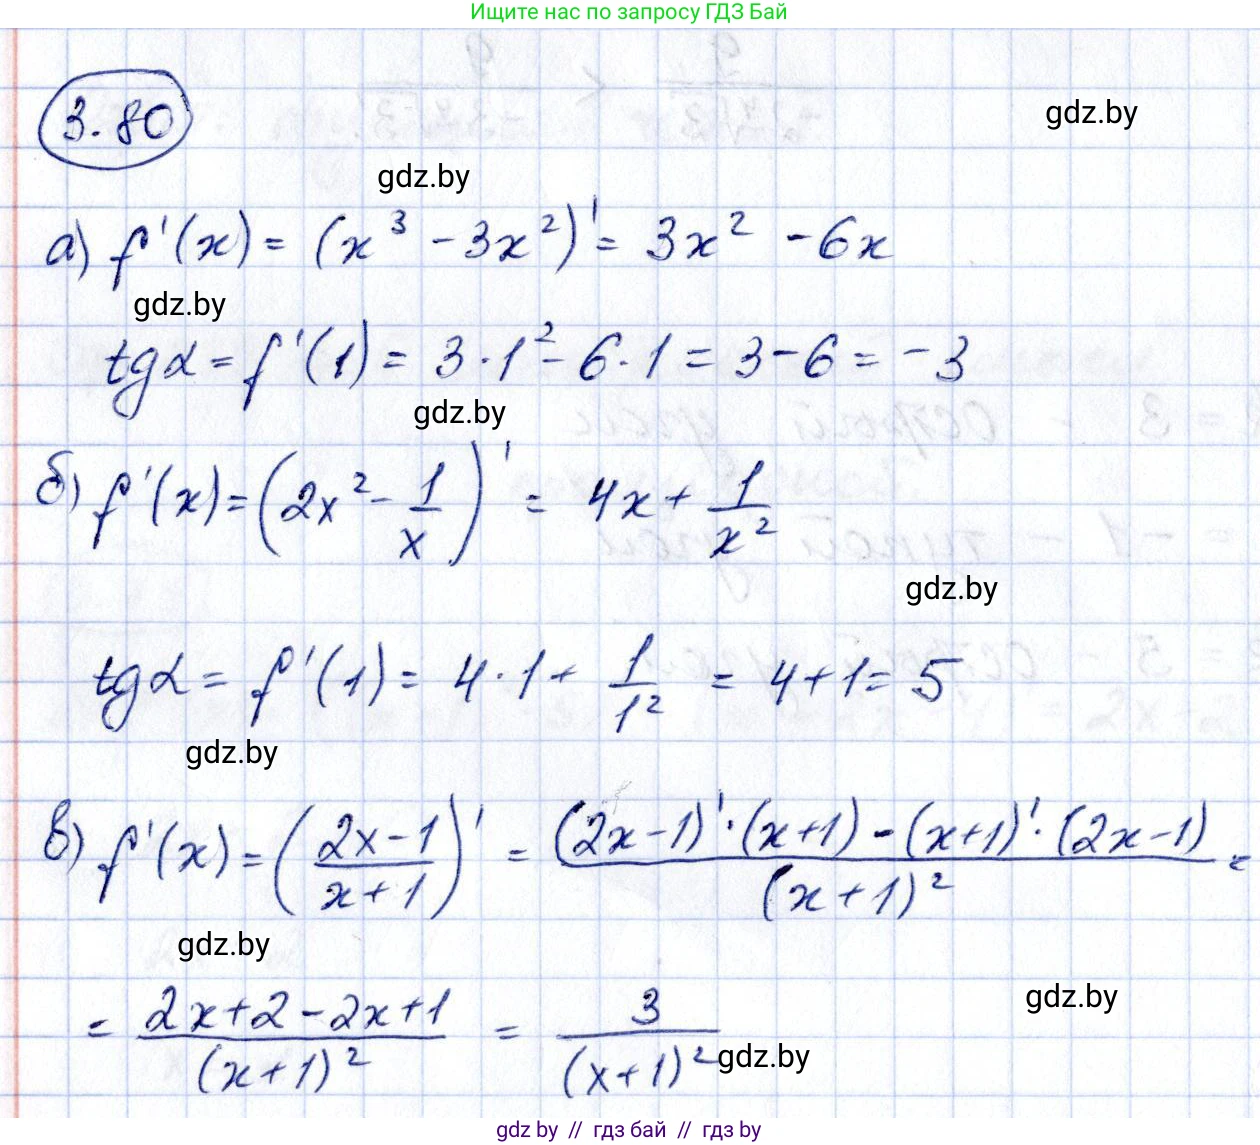 Ищите нас по запросу ГДЗ Бай
3.80
gdz.by
gdz.by
а) f'(x) = (x³ - 3x²)' = 3x² - 6x
gdz.by
tgα = f'(1) = 3·1² - 6·1 = 3 - 6 = -3
gdz.by
б) f'(x) = (2x² - 1/x)' = 4x + 1/x²
gdz.by
tgα = f'(1) = 4·1 + 1/1² = 4 + 1 = 5
gdz.by
в) f'(x) = ((2x-1)/(x+1))' = ((2x-1)'·(x+1) - (x+1)'·(2x-1))/(x+1)² =
gdz.by
= (2x+2-2x+1)/(x+1)² = 3/(x+1)²
gdz.by
gdz.by
gdz by // гдз бай // гдз by